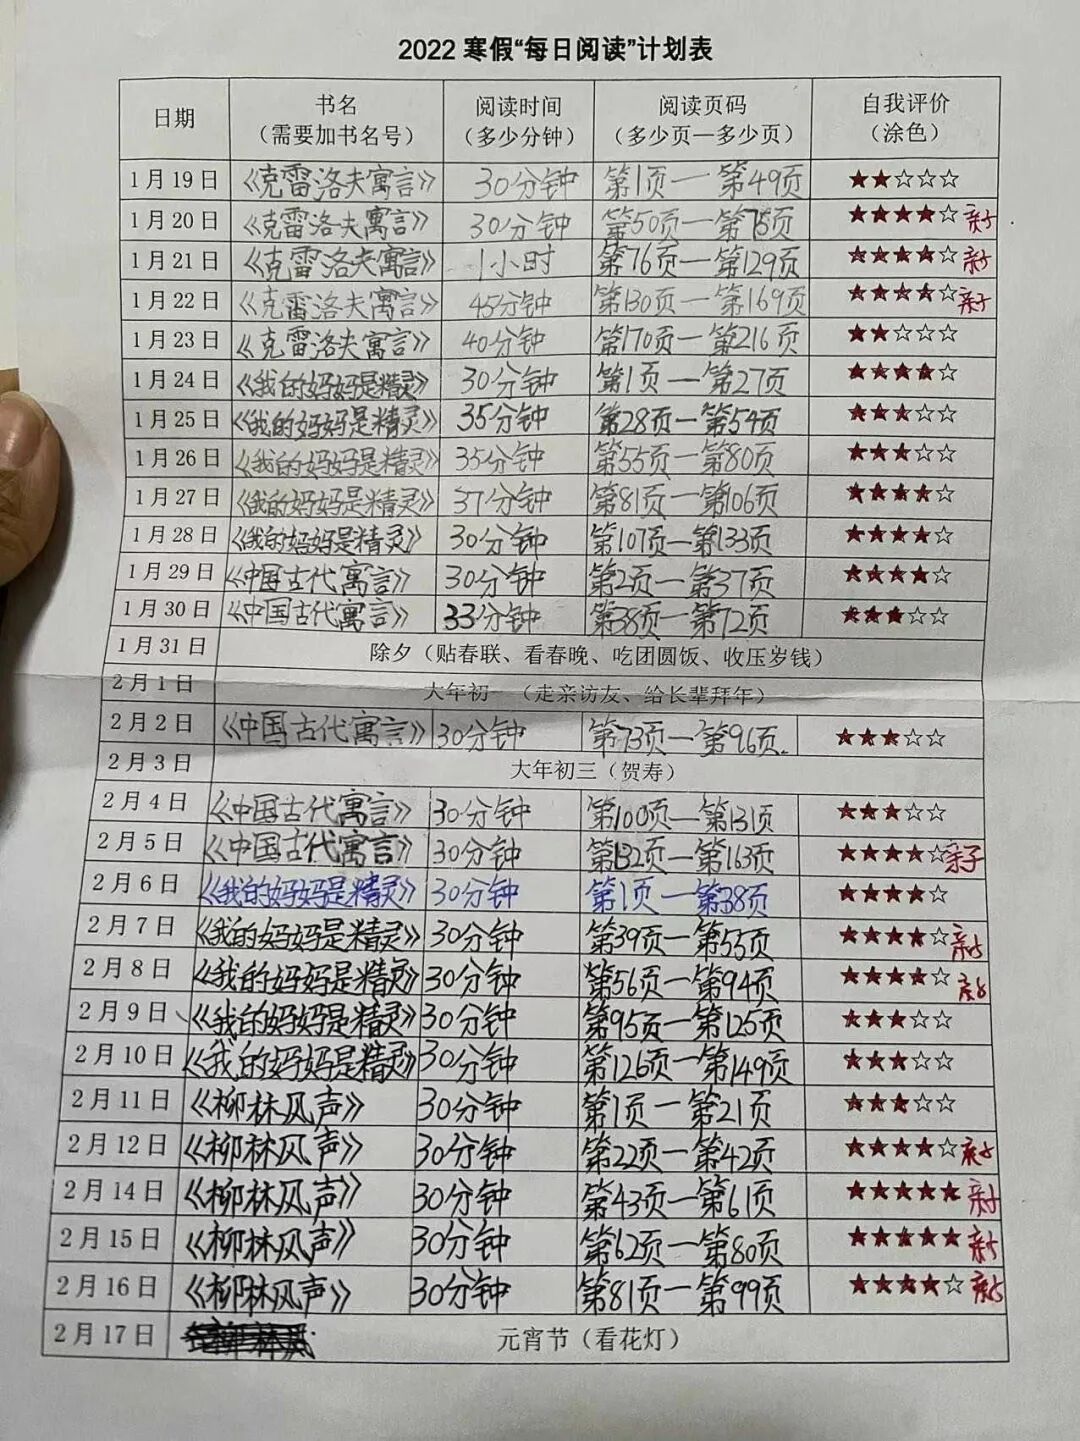 2022 寒假“每日阅读”计划表
日期 书名 阅读时间 阅读页码 自我评价
（需要加书名号） （多少分钟） （多少页—多少页） （涂色）
1月19日 《克雷洛夫寓言》 30分钟 第1页—第49页 ★★☆☆☆
1月20日 《克雷洛夫寓言》 30分钟 第50页—第75页 ★★★★☆ 亲子
1月21日 《克雷洛夫寓言》 1小时 第76页—第129页 ★★★★☆ 亲子
1月22日 《克雷洛夫寓言》 45分钟 第130页—第169页 ★★★★☆ 亲子
1月23日 《克雷洛夫寓言》 40分钟 第170页—第216页 ★★☆☆☆
1月24日 《我的妈妈是精灵》 30分钟 第1页—第27页 ★★★★☆
1月25日 《我的妈妈是精灵》 35分钟 第28页—第54页 ★★★☆☆
1月26日 《我的妈妈是精灵》 35分钟 第55页—第80页 ★★★☆☆
1月27日 《我的妈妈是精灵》 37分钟 第81页—第106页 ★★★★☆
1月28日 《我的妈妈是精灵》 30分钟 第107页—第133页 ★★★★☆
1月29日 《中国古代寓言》 30分钟 第2页—第37页 ★★★★☆
1月30日 《中国古代寓言》 33分钟 第38页—第72页 ★★★☆☆
1月31日 除夕（贴春联、看春晚、吃团圆饭、收压岁钱）
2月1日 大年初一（走亲访友、给长辈拜年）
2月2日 《中国古代寓言》 30分钟 第73页—第96页 ★★★☆☆
2月3日 大年初三（贺寿）
2月4日 《中国古代寓言》 30分钟 第100页—第131页 ★★★☆☆
2月5日 《中国古代寓言》 30分钟 第132页—第163页 ★★★★☆ 亲子
2月6日 《我的妈妈是精灵》 30分钟 第1页—第38页 ★★★★☆
2月7日 《我的妈妈是精灵》 30分钟 第39页—第55页 ★★★★☆ 亲子
2月8日 《我的妈妈是精灵》 30分钟 第56页—第94页 ★★★★☆ 亲子
2月9日 《我的妈妈是精灵》 30分钟 第95页—第125页 ★★★☆☆
2月10日 《我的妈妈是精灵》 30分钟 第126页—第149页 ★★★☆☆
2月11日 《柳林风声》 30分钟 第1页—第21页 ★★★☆☆
2月12日 《柳林风声》 30分钟 第22页—第42页 ★★★★☆ 亲子
2月14日 《柳林风声》 30分钟 第43页—第61页 ★★★★★ 亲子
2月15日 《柳林风声》 30分钟 第62页—第80页 ★★★★★ 亲子
2月16日 《柳林风声》 30分钟 第81页—第99页 ★★★★☆ 亲子
2月17日 元宵节（看花灯）